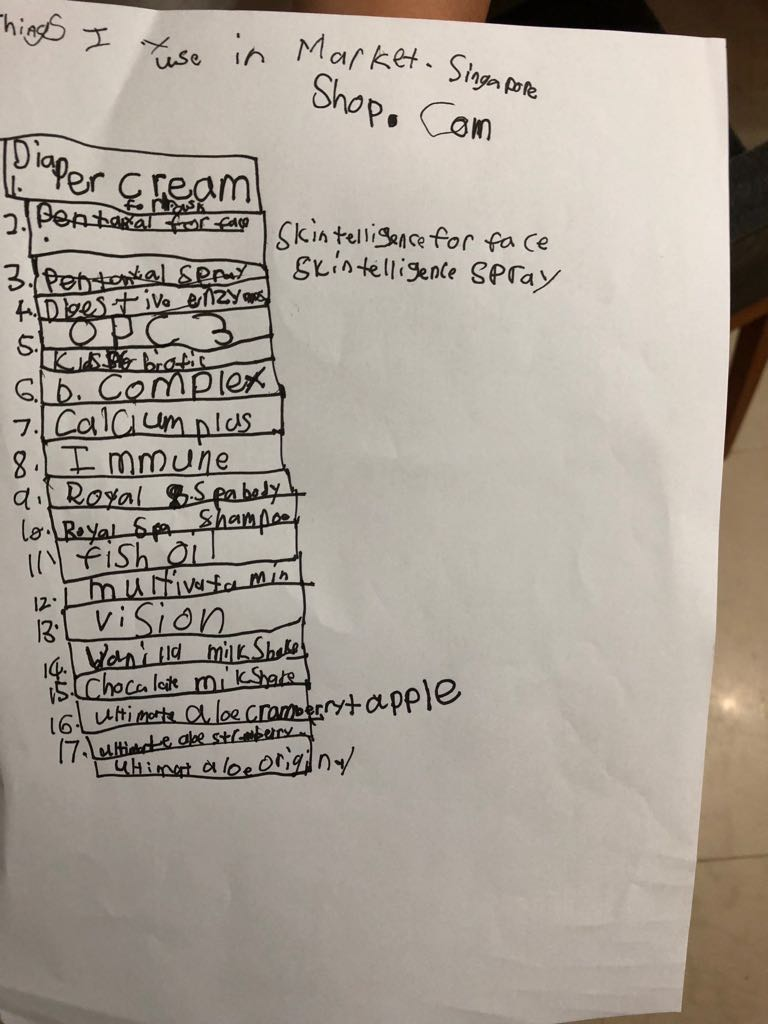 Things I use in Market. Singapore
Shop. Com
Diaper cream
1.
2. Pentaxal for face
Skintelligence for face
3. Pentaxal spray
Skintelligence spray
4. Digestive enzymes
5. OPC 3
Kids biotic
6. b. complex
7. Calcium plus
8. Immune
9. Royal Spa body
10. Royal Spa Shampoo
11. fish oil
12. multivatamin
13. vision
14. Vanilla milkshake
15. Chocalate milkshake
16. ultimate aloe cramberry+apple
17. ultimate aloe strawberry
ultimat aloe originy